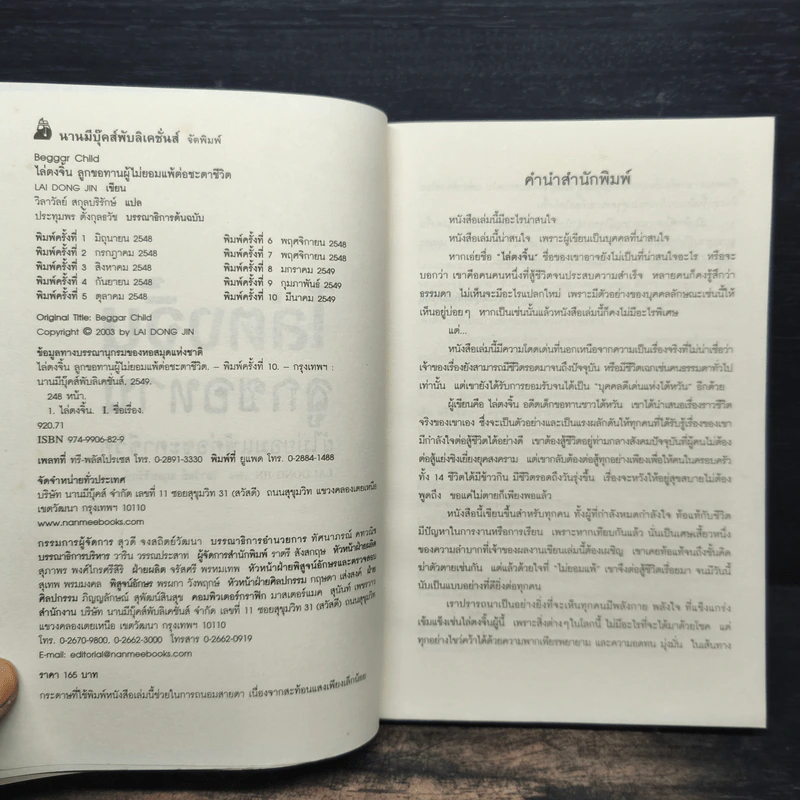 นานมีบุ๊คส์พับลิเคชั่นส์ จัดพิมพ์
Beggar Child
ไล่ตงจิ้น ลูกขอทานผู้ไม่ยอมแพ้ต่อชะตาชีวิต
LAI DONG JIN เขียน
วิลาวัลย์ สกุลบริรักษ์ แปล
ประทุมพร ตั้งกุลอวัช บรรณาธิการต้นฉบับ
พิมพ์ครั้งที่ 1 มิถุนายน 2548
พิมพ์ครั้งที่ 2 กรกฎาคม 2548
พิมพ์ครั้งที่ 3 สิงหาคม 2548
พิมพ์ครั้งที่ 4 กันยายน 2548
พิมพ์ครั้งที่ 5 ตุลาคม 2548
พิมพ์ครั้งที่ 6 พฤศจิกายน 2548
พิมพ์ครั้งที่ 7 พฤศจิกายน 2548
พิมพ์ครั้งที่ 8 มกราคม 2549
พิมพ์ครั้งที่ 9 กุมภาพันธ์ 2549
พิมพ์ครั้งที่ 10 มีนาคม 2549
Original Title: Beggar Child
Copyright © 2003 by LAI DONG JIN
ข้อมูลทางบรรณานุกรมของหอสมุดแห่งชาติ
ไล่ตงจิ้น ลูกขอทานผู้ไม่ยอมแพ้ต่อชะตาชีวิต. – พิมพ์ครั้งที่ 10. – กรุงเทพฯ :
นานมีบุ๊คส์พับลิเคชั่นส์, 2549.
248 หน้า.
1. ไล่ตงจิ้น. I. ชื่อเรื่อง.
920.71
ISBN 974-9906-82-9
เพลทที่ ทรี-พลัสโปรเซส โทร. 0-2891-3330 พิมพ์ที่ ยูแพด โทร. 0-2884-1488
จัดจำหน่ายทั่วประเทศ
บริษัท นานมีบุ๊คส์ จำกัด เลขที่ 11 ซอยสุขุมวิท 31 (สวัสดี) ถนนสุขุมวิท แขวงคลองเตยเหนือ
เขตวัฒนา กรุงเทพฯ 10110
www.nanmeebooks.com
กรรมการผู้จัดการ สุวดี จงสถิตย์วัฒนา บรรณาธิการอำนวยการ ทัศนาภรณ์ คทวณิช
บรรณาธิการบริหาร วาริน วรรณประสาท ผู้จัดการสำนักพิมพ์ ราตรี สังสกฤษ หัวหน้าฝ่ายผลิต
สุภาพร พงศ์ไกรศิริสิริ ฝ่ายผลิต จรัสศรี พรหมเทพ หัวหน้าฝ่ายพิสูจน์อักษรและตรวจสอบ
สุเทพ พรมมงคล พิสูจน์อักษร พรผกา วังพฤกษ์ หัวหน้าฝ่ายศิลปกรรม กฤษดา เส่งสงค์ ฝ่าย
ศิลปกรรม ภิญญลักษณ์ สุพัฒน์สินสุข คอมพิวเตอร์กราฟิก มาสเตอร์แมค สุนันท์ เพชรวาว
สำนักงาน บริษัท นานมีบุ๊คส์ จำกัด เลขที่ 11 ซอยสุขุมวิท 31 (สวัสดี) ถนนสุขุมวิท
แขวงคลองเตยเหนือ เขตวัฒนา กรุงเทพฯ 10110
โทร. 0-2670-9800, 0-2662-3000 โทรสาร 0-2662-0919
E-mail: editorial@nanmeebooks.com
ราคา 165 บาท
กระดาษที่ใช้พิมพ์หนังสือเล่มนี้ช่วยในการถนอมสายตา เนื่องจากสะท้อนแสงเพียงเล็กน้อย
คำนำสำนักพิมพ์
หนังสือเล่มนี้มีอะไรน่าสนใจ
หนังสือเล่มนี้น่าสนใจ เพราะผู้เขียนเป็นบุคคลที่น่าสนใจ
หากเอ่ยชื่อ "ไล่ตงจิ้น" ชื่อของเขาอาจยังไม่เป็นที่น่าสนใจอะไร หรือจะ
บอกว่า เขาคือคนคนหนึ่งที่สู้ชีวิตจนประสบความสำเร็จ หลายคนก็คงรู้สึกว่า
ธรรมดา ไม่เห็นจะมีอะไรแปลกใหม่ เพราะมีตัวอย่างของบุคคลลักษณะเช่นนี้ให้
เห็นอยู่บ่อยๆ หากเป็นเช่นนั้นแล้วหนังสือเล่มนี้ก็คงไม่มีอะไรพิเศษ
แต่...
หนังสือเล่มนี้มีความโดดเด่นที่นอกเหนือจากความเป็นเรื่องจริงที่ไม่น่าเชื่อว่า
เจ้าของเรื่องยังสามารถมีชีวิตรอดมาจนถึงปัจจุบัน หรือมีชีวิตเฉกเช่นคนธรรมดาทั่วไป
เท่านั้น แต่เขายังได้รับการยอมรับจนได้เป็น "บุคคลดีเด่นแห่งไต้หวัน" อีกด้วย
ผู้เขียนคือ ไล่ตงจิ้น อดีตเด็กขอทานชาวไต้หวัน เขาได้นำเสนอเรื่องราวชีวิต
จริงของเขาเอง ซึ่งจะเป็นตัวอย่างและเป็นแรงผลักดันให้ทุกคนที่ได้รับรู้เรื่องของเขา
มีกำลังใจต่อสู้ชีวิตได้อย่างดี เขาต้องสู้ชีวิตอยู่ท่ามกลางสังคมปัจจุบันที่ผู้คนไม่ต้อง
ต่อสู้แย่งชิงเยี่ยงยุคสงคราม แต่เขากลับต้องต่อสู้ทุกอย่างเพียงเพื่อให้คนในครอบครัว
ทั้ง 14 ชีวิตได้มีข้าวกิน มีชีวิตรอดถึงวันรุ่งขึ้น เรื่องจะหวังให้อยู่สุขสบายไม่ต้อง
พูดถึง ขอแค่ไม่ตายก็เพียงพอแล้ว
หนังสือนี้เขียนขึ้นสำหรับทุกคน ทั้งผู้ที่กำลังหมดกำลังใจ ท้อแท้กับชีวิต
มีปัญหาในการงานหรือการเรียน เพราะหากเทียบกันแล้ว นั่นเป็นเศษเสี้ยวหนึ่ง
ของความลำบากที่เจ้าของผลงานเขียนเล่มนี้ต้องเผชิญ เขาเคยท้อแท้จนถึงขั้นคิด
ฆ่าตัวตายเช่นกัน แต่แล้วด้วยใจที่ "ไม่ยอมแพ้" เขาจึงต่อสู้เรื่อยมา จนมีวันนี้
นับเป็นแบบอย่างที่ดียิ่งต่อทุกคน
เราปรารถนาเป็นอย่างยิ่งที่จะเห็นทุกคนมีพลังกาย พลังใจ ที่แข็งแกร่ง
เข้มแข็งเช่นไล่ตงจิ้นผู้นี้ เพราะสิ่งต่างๆในโลกนี้ ไม่มีอะไรที่จะได้มาด้วยโชค แต่
ทุกอย่างไขว่คว้าได้ด้วยความพากเพียรพยายาม และความอดทน มุ่งมั่น ในเส้นทาง